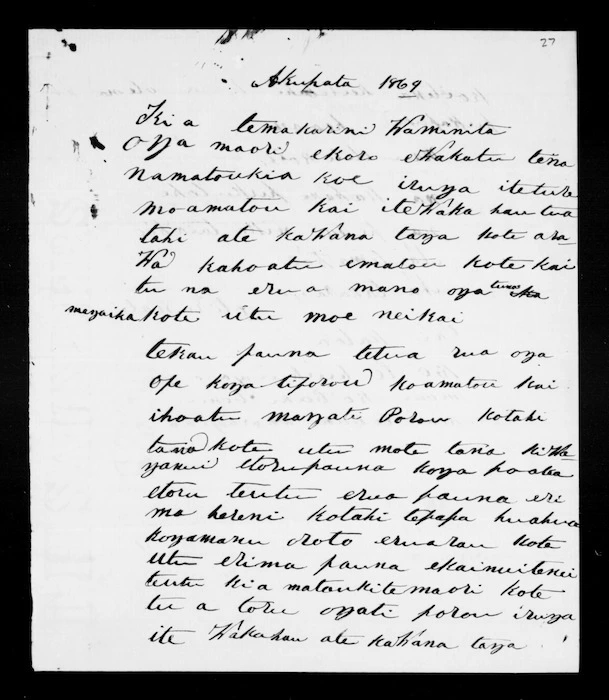 27
Akupata 1869
Ki a temakarini Waminita
oya maori ekoro eWakatu tena
namatoukia koe iruya iteture
moamatou kai iteWaka hau tua
tahi ate kaWana taya kote ara
Wa kahoatu ematou kote kai
tu na erua mano oya tunaika
mayaika kote utu moe neikai
tekau pauna tetua rua oya
ope koya tiporou koamatou kai
ihoatu mayati Porou kotahi
tana kote utu mote tana kiWa
yanui etorupauna koya paatea
etoru teutu erua pauna eri
ma hereni kotahi tepapa huahua
koyamanu oroto eruarau kote
utu erima pauna ekainuitenei
teutu kia mataukitemaori kote
tu a toru oyati porou iruya
ite Wakahau ate kaWana taya